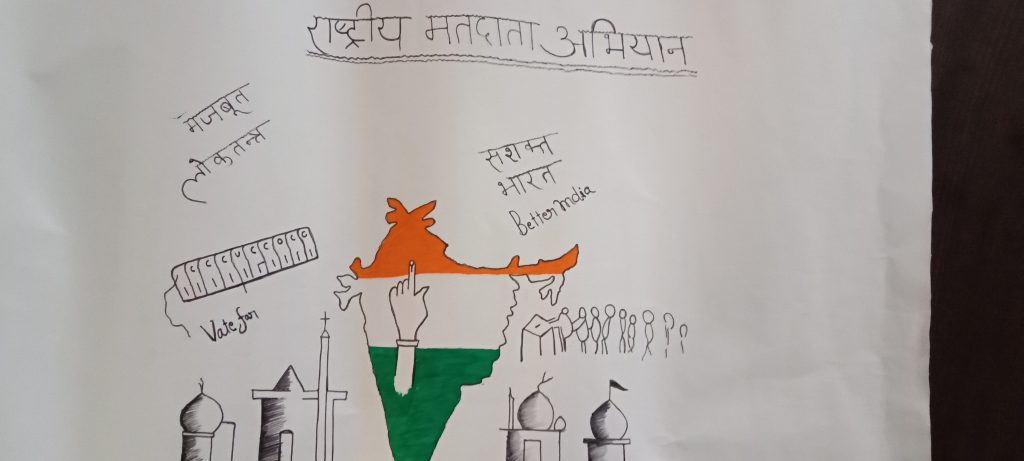 राष्ट्रीय मतदाता अभियान
मजबूत
लोकतन्त्र
सशक्त
भारत
Better india
Vate for